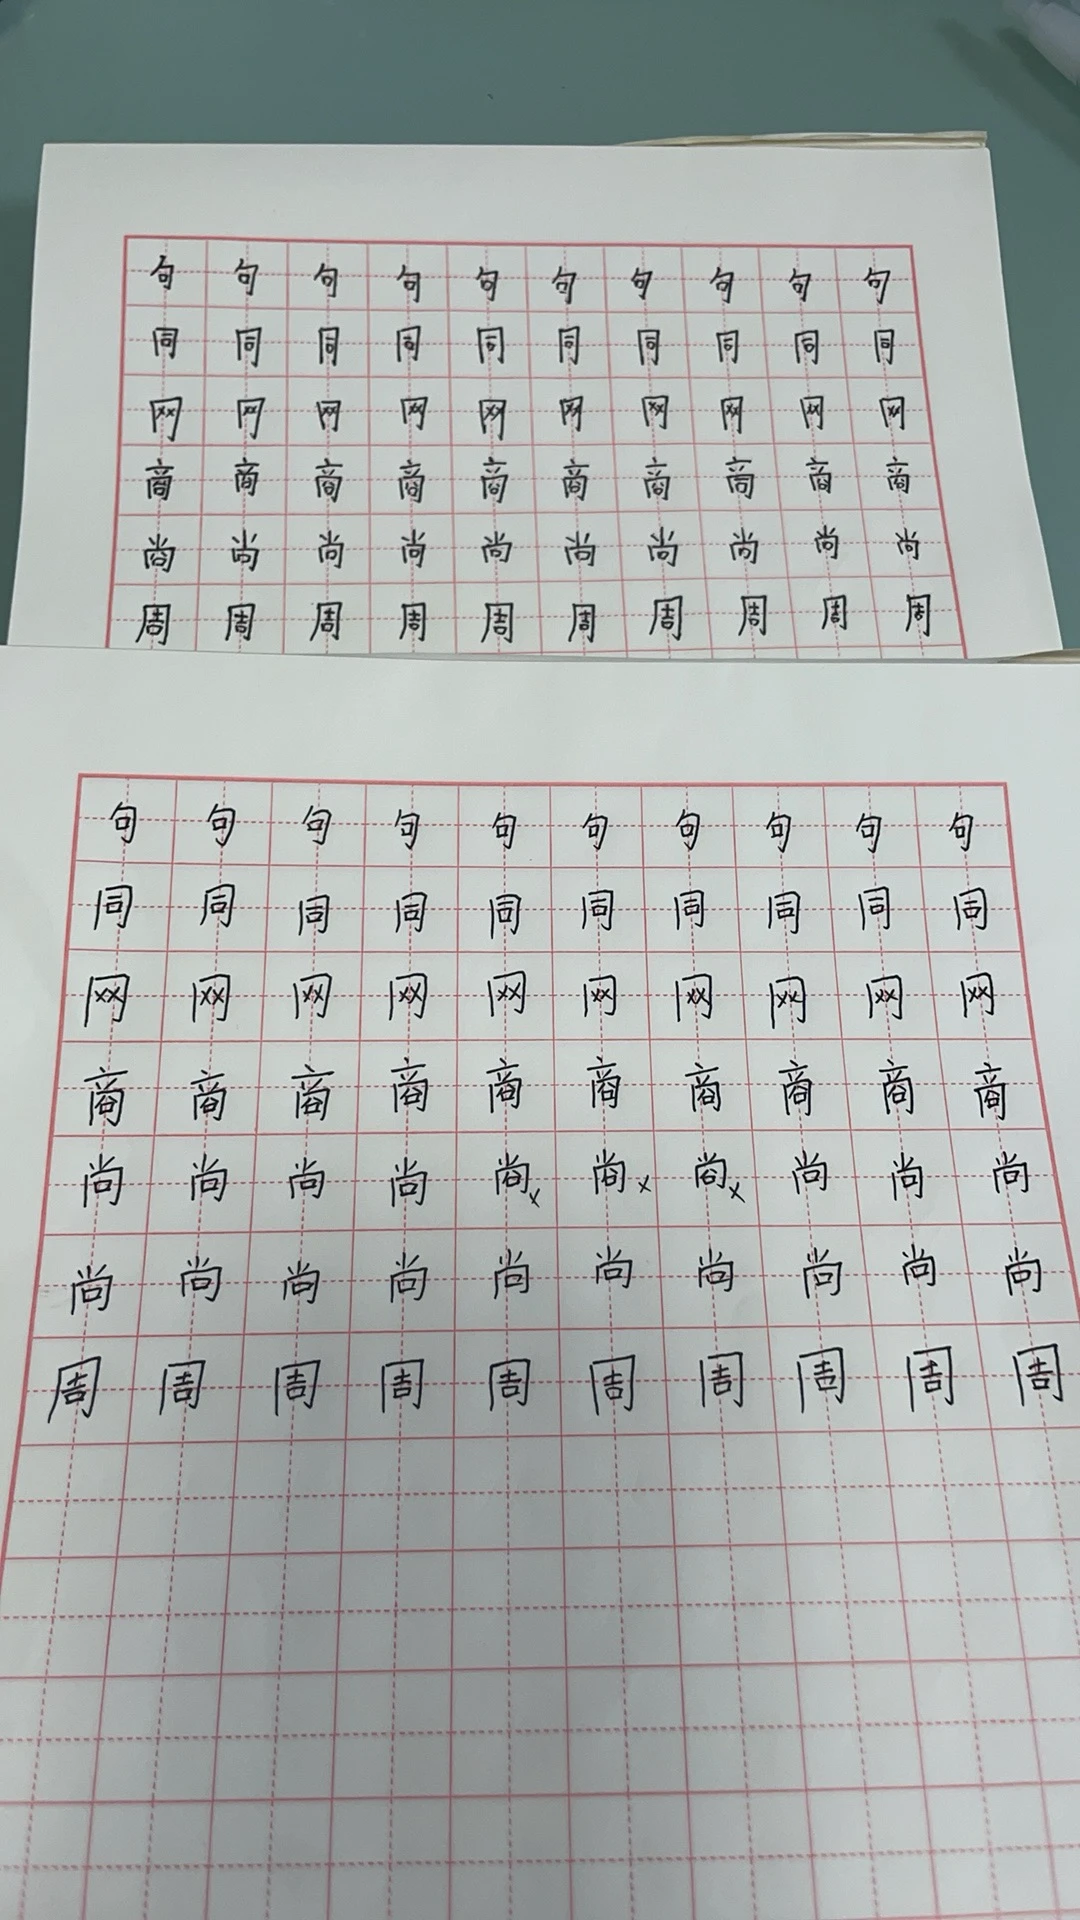 句 句 句 句 句 句 句 句 句 句
同 同 同 同 同 同 同 同 同 同
网 网 网 网 网 网 网 网 网 网
商 商 商 商 商 商 商 商 商 商
尚 尚 尚 尚 尚 尚 尚 尚 尚 尚
周 周 周 周 周 周 周 周 周 周
句 句 句 句 句 句 句 句 句 句
同 同 同 同 同 同 同 同 同 同
网 网 网 网 网 网 网 网 网 网
商 商 商 商 商 商 商 商 商 商
尚 尚 尚 尚 尚x 尚x 尚x 尚 尚 尚
尚 尚 尚 尚 尚 尚 尚 尚 尚 尚
周 周 周 周 周 周 周 周 周 周